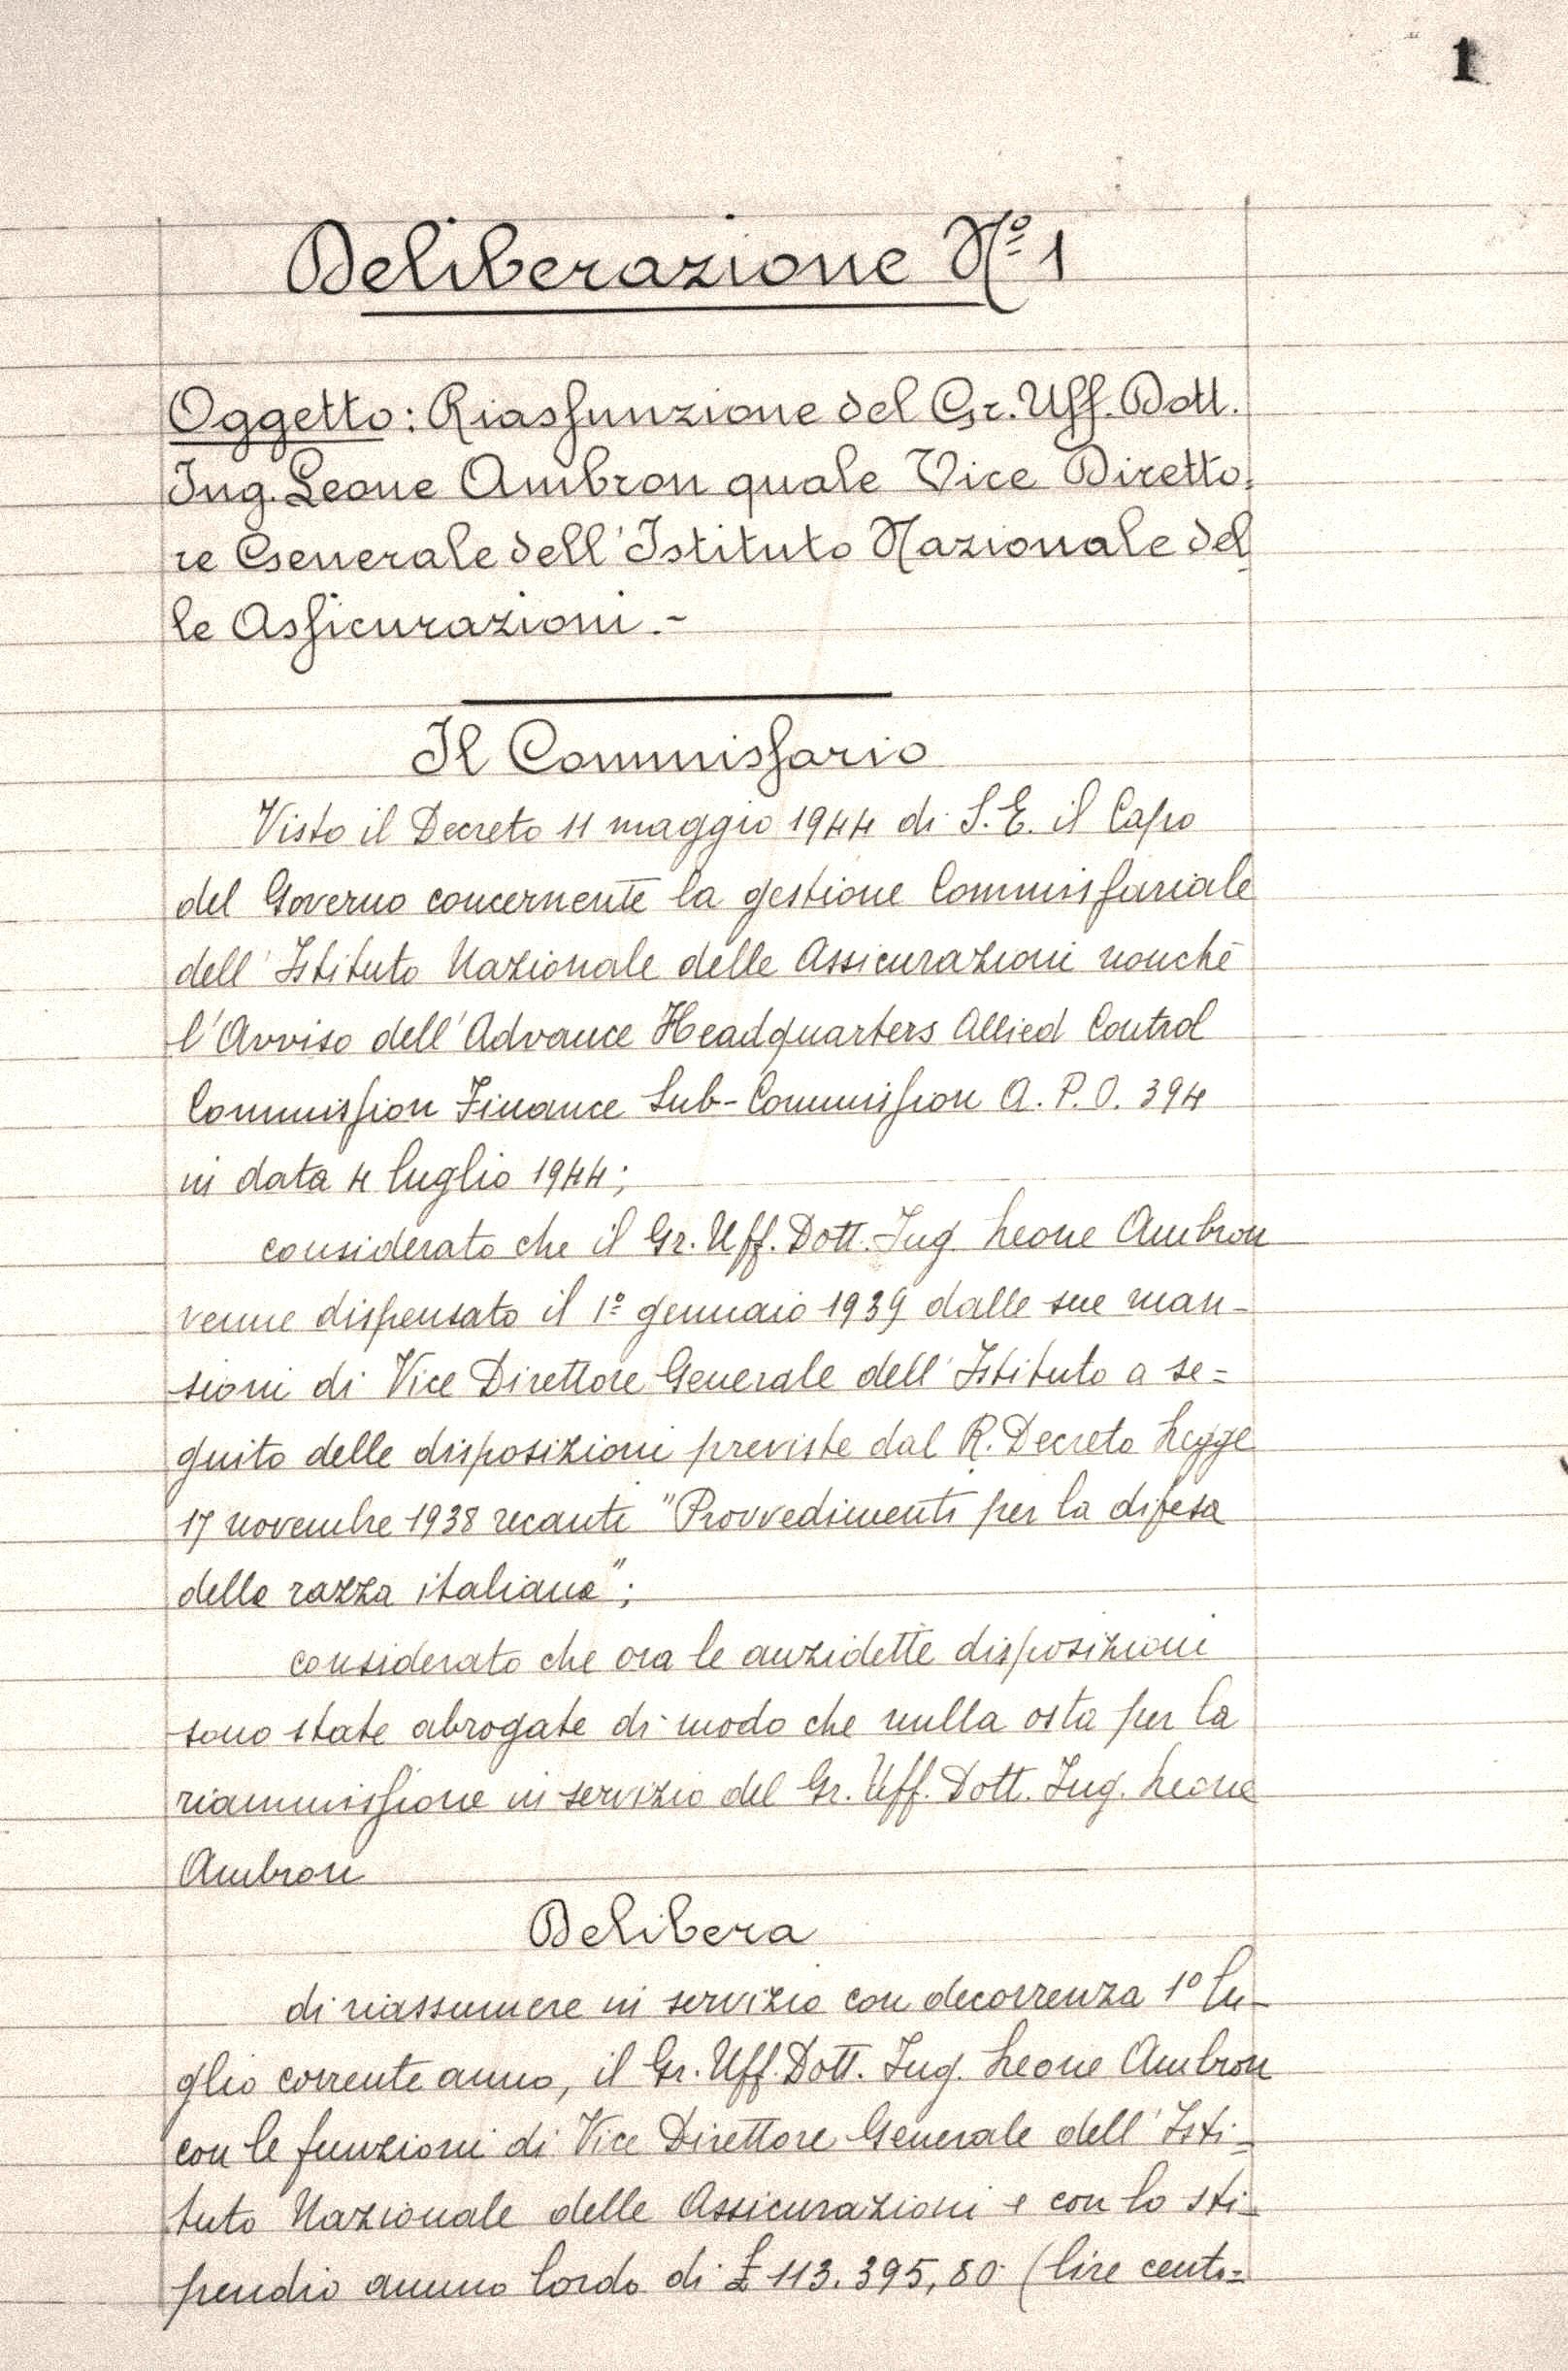 1
Deliberazione Nº 1
Oggetto: Riassunzione del Gr. Uff. Dott.
Ing. Leone Ambron quale Vice Diretto=
re Generale dell'Istituto Nazionale del=
le Assicurazioni.-
Il Commissario
Visto il Decreto 11 maggio 1944 di S. E. il Capo
del Governo concernente la gestione Commissariale
dell'Istituto Nazionale delle Assicurazioni nonchè
l'Avviso dell'Advance Headquarters Allied Control
Commission Finance Sub-Commission A. P. O. 394
in data 4 luglio 1944;
considerato che il Gr. Uff. Dott. Ing Leone Ambron
venne dispensato il 1º gennaio 1939 dalle sue man-
sioni di Vice Direttore Generale dell'Istituto a se=
guito delle disposizioni previste dal R. Decreto Legge
17 novembre 1938 recante "Provvedimenti per la difesa
della razza italiana";
considerato che ora le anzidette disposizioni
sono state abrogate di modo che nulla osta per la
riammissione in servizio del Gr. Uff. Dott. Ing. Leone
Ambron
Delibera
di riassumere in servizio con decorrenza 1º lu-
glio corrente anno, il Gr. Uff. Dott. Ing. Leone Ambron
con le funzioni di Vice Direttore Generale dell'Isti=
tuto Nazionale delle Assicurazioni e con lo sti=
pendio annuo lordo di £ 113.395,80 (lire cento=